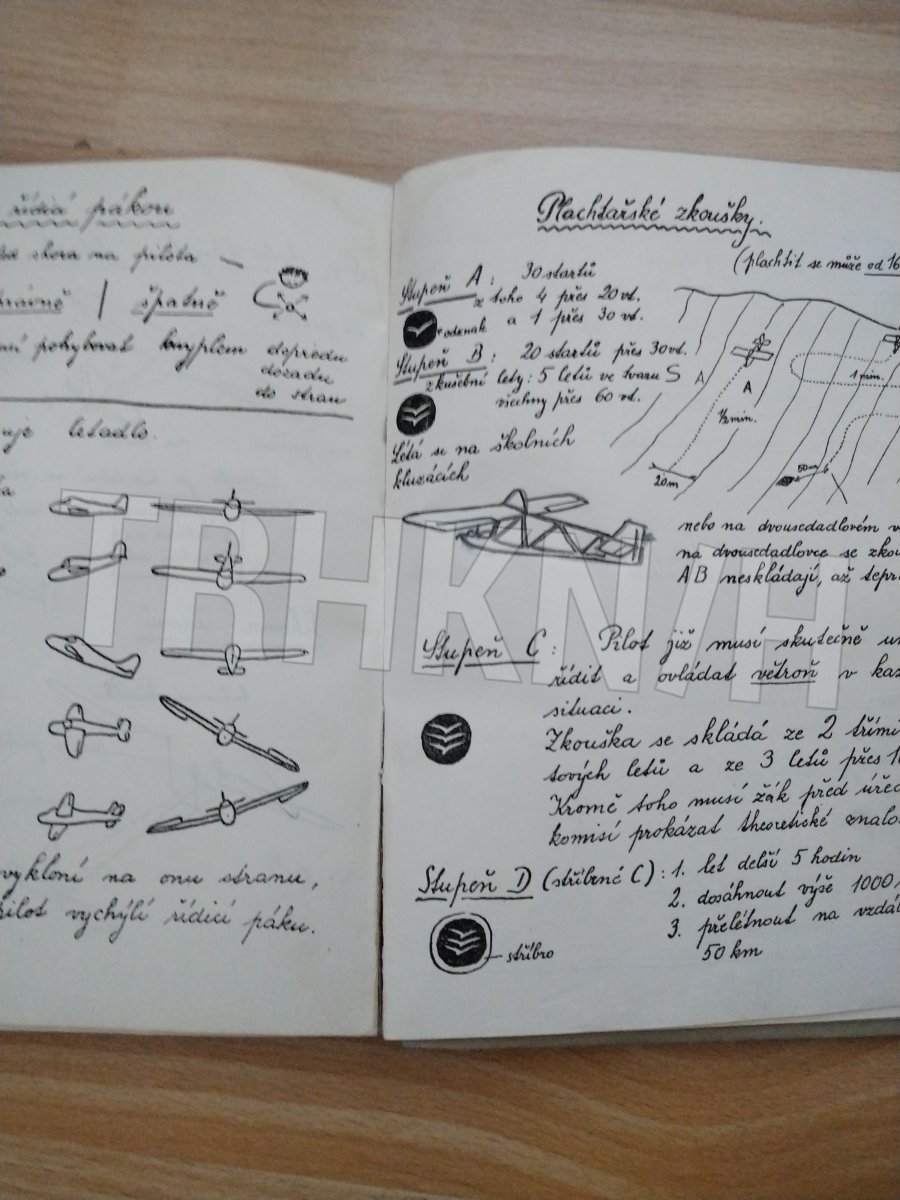 řídicí pákou
shora na pilota
správně | špatně
pohybovat knyplem dopředu
dozadu
do stran
letadlo.
vykloní na onu stranu,
pilot vychýlí řídicí páku.
Plachtařské zkoušky.
(plachtit se může od 16
Stupeň A: 30 startů
z toho 4 přes 20 vt.
odznak a 1 přes 30 vt.
Stupeň B: 20 startů přes 30 vt.
zkušební lety: 5 letů ve tvaru S
všechny přes 60 vt.
Létá se na školních
kluzácích
A
A
1/2 min.
20 m
1 min.
50 m
nebo na dvousedadlovém v
na dvousedadlovce se zkou
AB neskládají, až tepr
Stupeň C: Pilot již musí skutečně um
řídit a ovládat větroň v kaž
situaci.
Zkouška se skládá ze 2 třímin
tových letů a ze 3 letů přes 1
Kromě toho musí žák před úřed
komisí prokázat theoretické znalo
Stupeň D (stříbrné C): 1. let delší 5 hodin
2. dosáhnout výše 1000
3. přelétnout na vzdál
50 km
stříbro
TBHKNVH